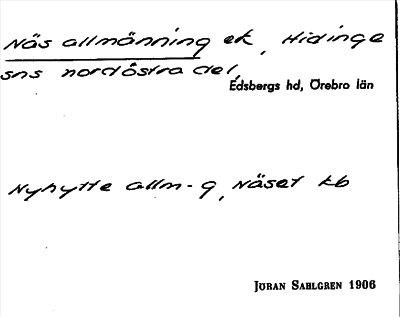 Näs allmänning ek, Hidinge
sns nordöstra del,
Edsbergs hd, Örebro län
Nyhytte allm-g, Näset kb
Jöran Sahlgren 1906